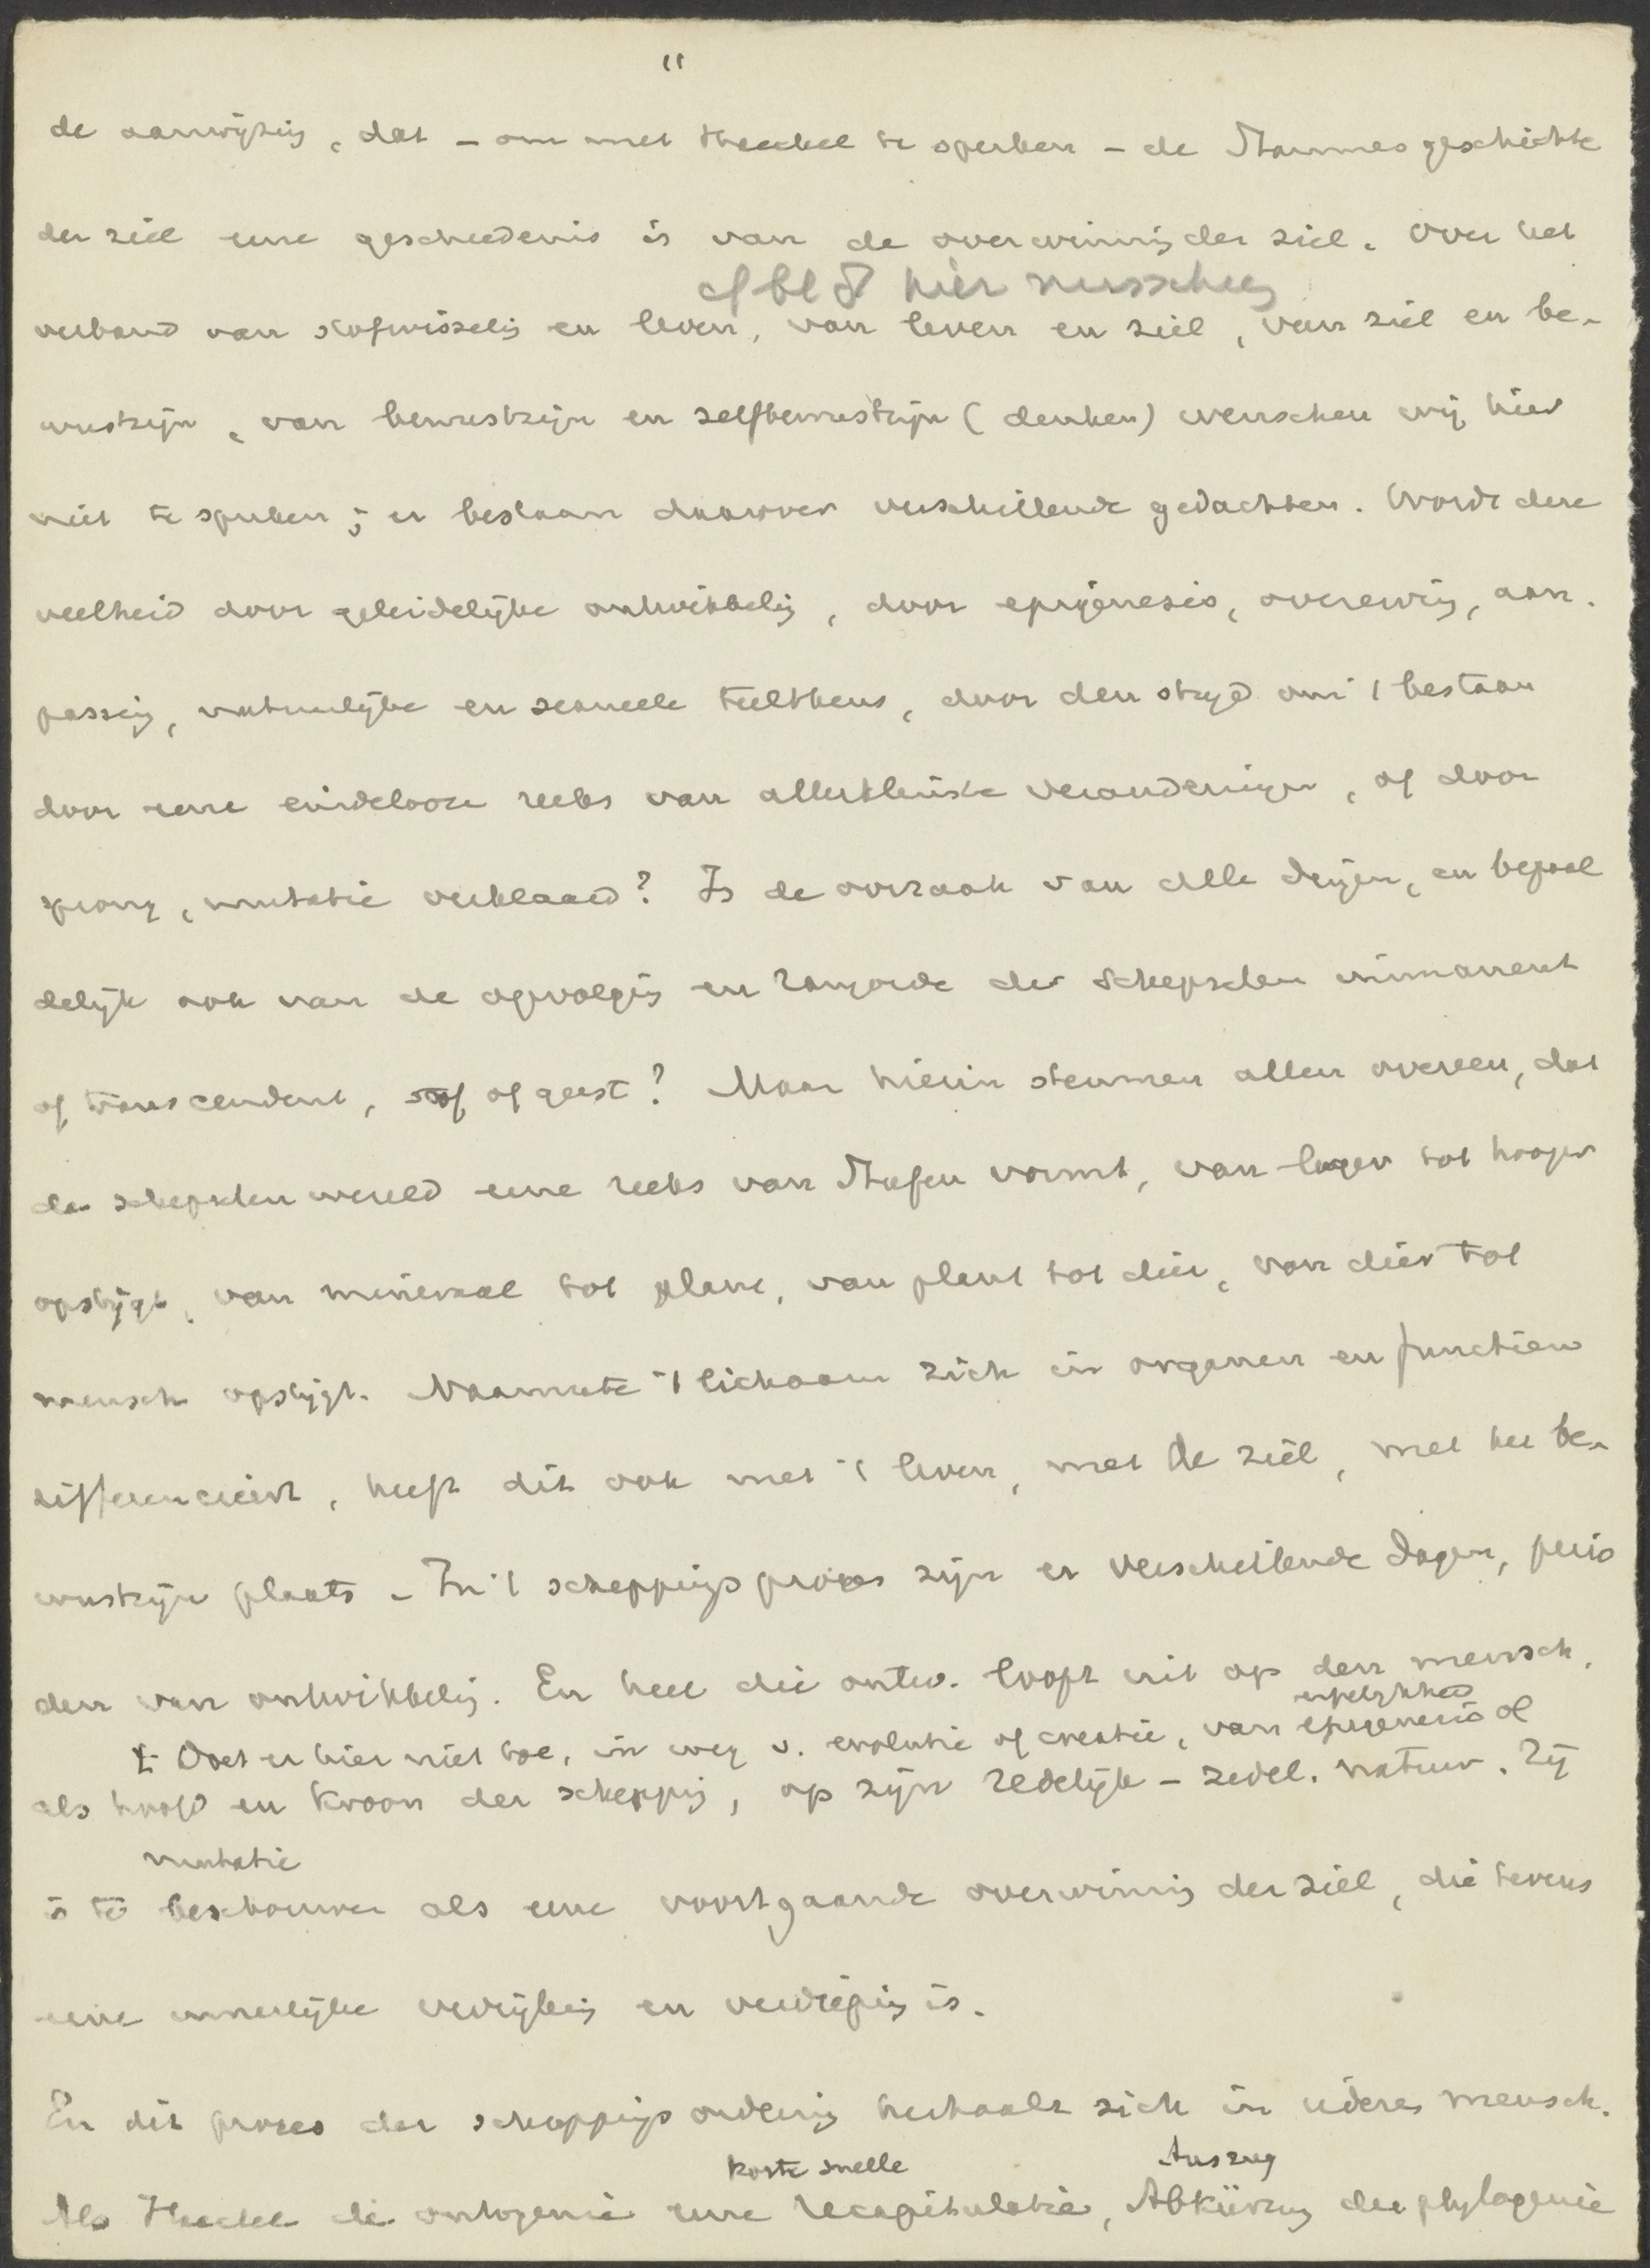 11
de aanwijzing, dat – om met Haeckel te spreken – de Stammesgeschichte
der ziel eene geschiedenis is van de overwinning der ziel. Over het
of bl 8 hier
verband van stofwisseling en leven, van leven en ziel, van ziel en be-
wustzijn, van bewustzijn en zelfbewustzijn (denken) wenschen wij hier
niet te spreken; er bestaan daarover verschillende gedachten. Wordt deze
veelheid door geleidelijke ontwikkeling, door epigenesis, overerving, aan-
passing, natuurlijke en sexueele teeltkeus, door den strijd om 't bestaan
door eene eindelooze reeks van allerkleinste veranderingen, of door
sprong, mutatie verklaard? Is de oorzaak van alle dingen, en bepaal
delijk ook van de opvolging en rangorde der schepselen immanent
of transcendent, stof of geest? Maar hierin stemmen allen overeen, dat
de schepselen wereld eene reeks van Stufen vormt, van lager tot hooger
opstijgt, van mineraal tot plant, van plant tot dier, van dier tot
mensch opstijgt. Naarmate 't lichaam zich in organen en functien
differencieert, heeft dit ook met 't leven, met de ziel, met het be-
wustzijn plaats – In 't scheppingsproces zijn er verschillende dagen, perio
den van ontwikkeling. En heel die ontw. loopt uit op den mensch,
't Doet er hier niet toe, in weg v. evolutie of creatie, van epigenesis of
als hoofd en kroon der schepping, op zijn redelijk – zedel. natuur. Zij
mutatie
is te beschouwen als eene voortgaande overwinning der ziel, die tevens
eene innerlijke verrijking en verdieping is.
En dit proces der scheppingsordening herhaalt zich in iederen mensch.
korte snelle Auszug
Als Haeckel de ontogenie eene recapitulatie, Abkürzung der phylogenie